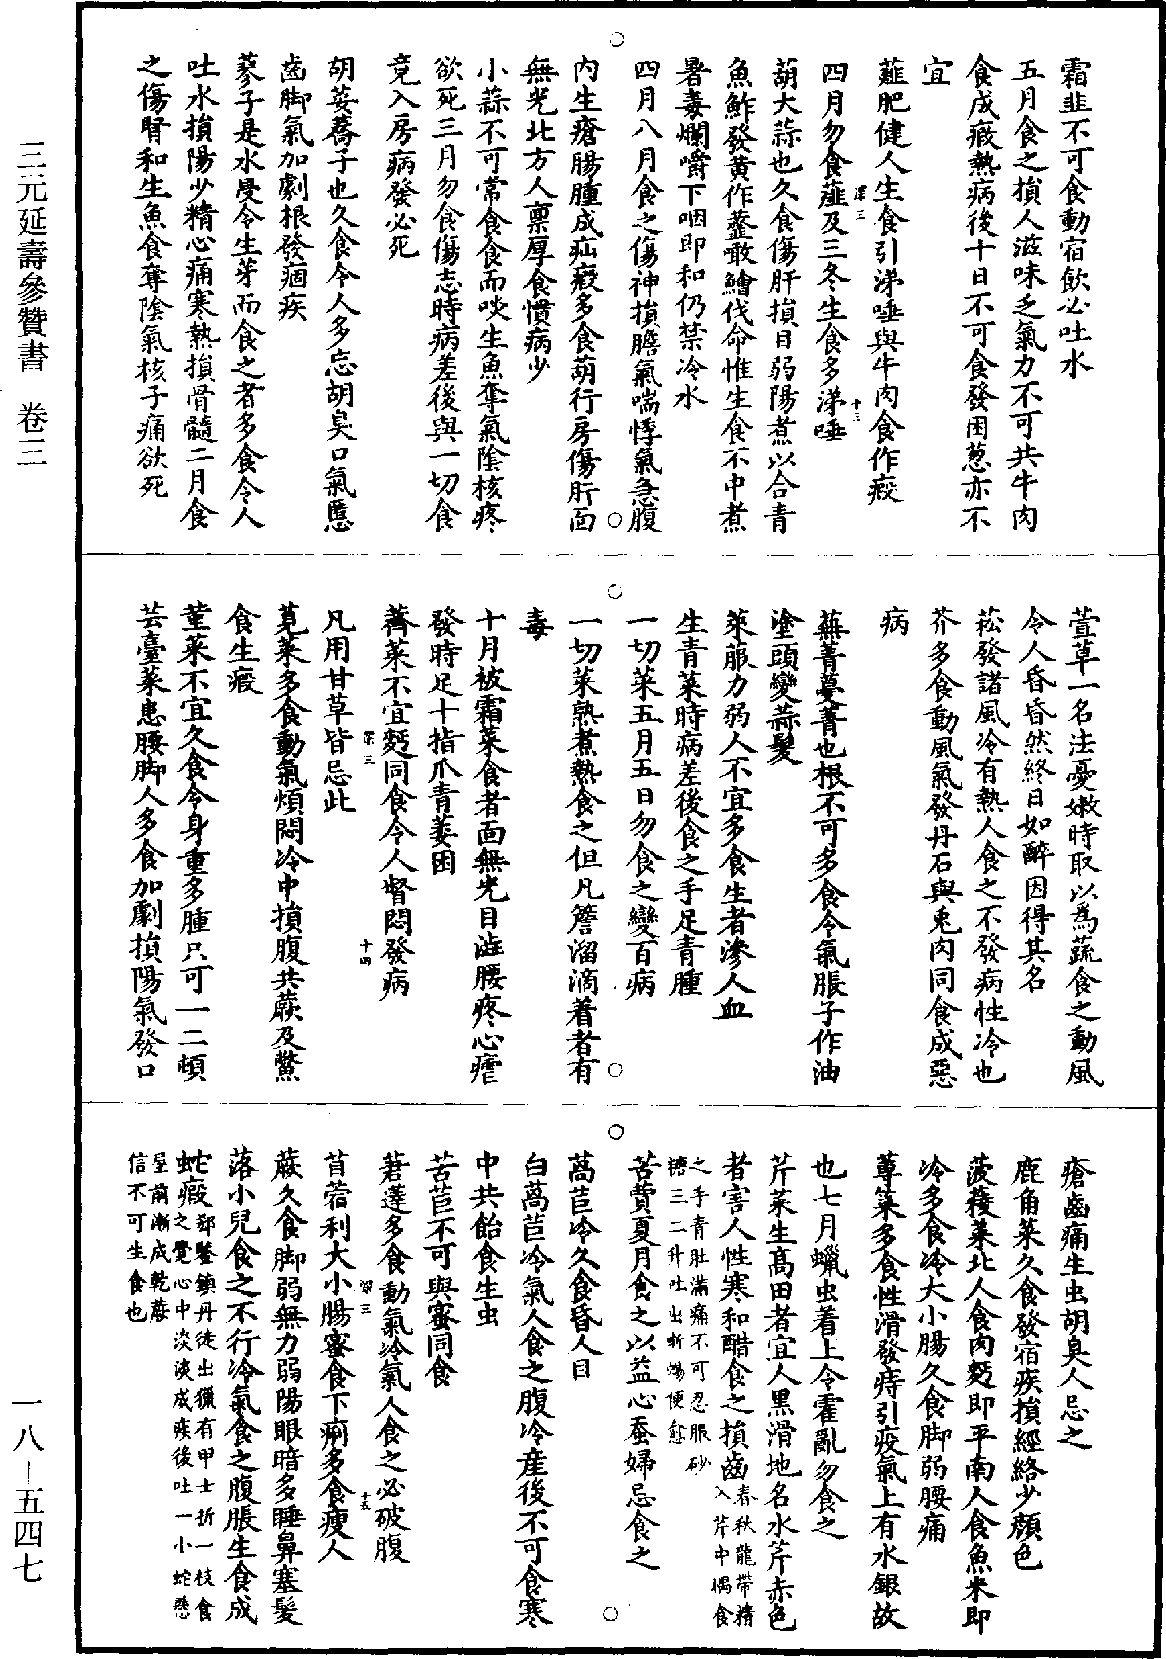 霜韭不可食動宿飲必吐水
五月食之損人滋味乏氣力不可共牛肉
食成瘕熱病後十日不可食發困葱亦不
宜
薤肥健人生食引涕唾與牛肉食作瘕
四月勿食薤及三冬生食多涕唾
深三
十三
葫大蒜也久食傷肝損目弱陽煮以合青
魚鮓發黃作虀啖鱠伐命惟生食不中煮
暑毒爛嚼下咽即和仍禁冷水
四月八月食之傷神損膽氣喘悸氣急腹
內生瘡腸腫成疝瘕多食葫行房傷肝面
無光北方人稟厚食慣病少
小蒜不可常食食而啖生魚奪氣陰核疼
欲死三月勿食傷志時病差後與一切食
竟入房病發必死
胡荽蕎子也久食令人多忘胡臭口氣䘌
齒脚氣加劇根發痼疾
蓼子是水浸令生芽而食之者多食令人
吐水損陽少精心痛寒熱損骨髓二月食
之傷腎和生魚食奪陰氣核子痛欲死
萱草一名法憂嫩時取以爲蔬食之動風
令人昏昏然終日如醉因得其名
菘發諸風冷有熱人食之不發病性冷也
芥多食動風氣發丹石與兎肉同食成惡
病
蕪菁蔓菁也根不可多食令氣脹子作油
塗頭變蒜髮
萊菔力弱人不宜多食生者滲人血
生青菜時病差後食之手足青腫
一切菜五月五日勿食之變百病
一切菜熟煮熱食之但凡簷溜滴着者有
毒
十月被霜菜食者面無光目澁腰疼心瘧
發時足十指爪青萎困
薺菜不宜麪同食令人督悶發病
深三
十四
凡用甘草皆忌此
莧菜多食動氣煩悶冷中損腹共蕨及鱉
食生瘕
菫菜不宜久食令身重多腫只可一二頓
芸臺菜患腰脚人多食加劇損陽氣發口
瘡齒痛生虫胡臭人忌之
鹿角菜久食發宿疾損經絡少顏色
菠薐菜北人食肉麪即平南人食魚米即
冷多食冷大小腸久食脚弱腰痛
蓴菜多食性滑發痔引疫氣上有水銀故
也七月蠟虫着上令霍亂勿食之
芹菜生高田者宜人黑滑地名水芹赤色
者害人性寒和醋食之損齒春秋龍帶精
入芹中偶食
之手青肚滿痛不可忍服砂
糖三二升吐出蜥蜴便愈
苦蕒夏月食之以益心蚕婦忌食之
萵苣冷久食昏人目
白萵苣冷氣人食之腹冷産後不可食寒
中共飴食生虫
苦苣不可與蜜同食
莙薘多食動氣冷氣人食之必破腹
苜蓿利大小腸蜜食下痢多食瘦人
深三
十五
蕨久食脚弱無力弱陽眼暗多睡鼻塞髮
落小兒食之不行冷氣食之腹脹生食成
蛇瘕郄鑒鎮丹徒出獵有甲士折一枝食
之覺心中淡淡成疾後吐一小蛇懸
屋前漸成乾蕨
信不可生食也
三元延壽參贊書　卷三
一八—五四七